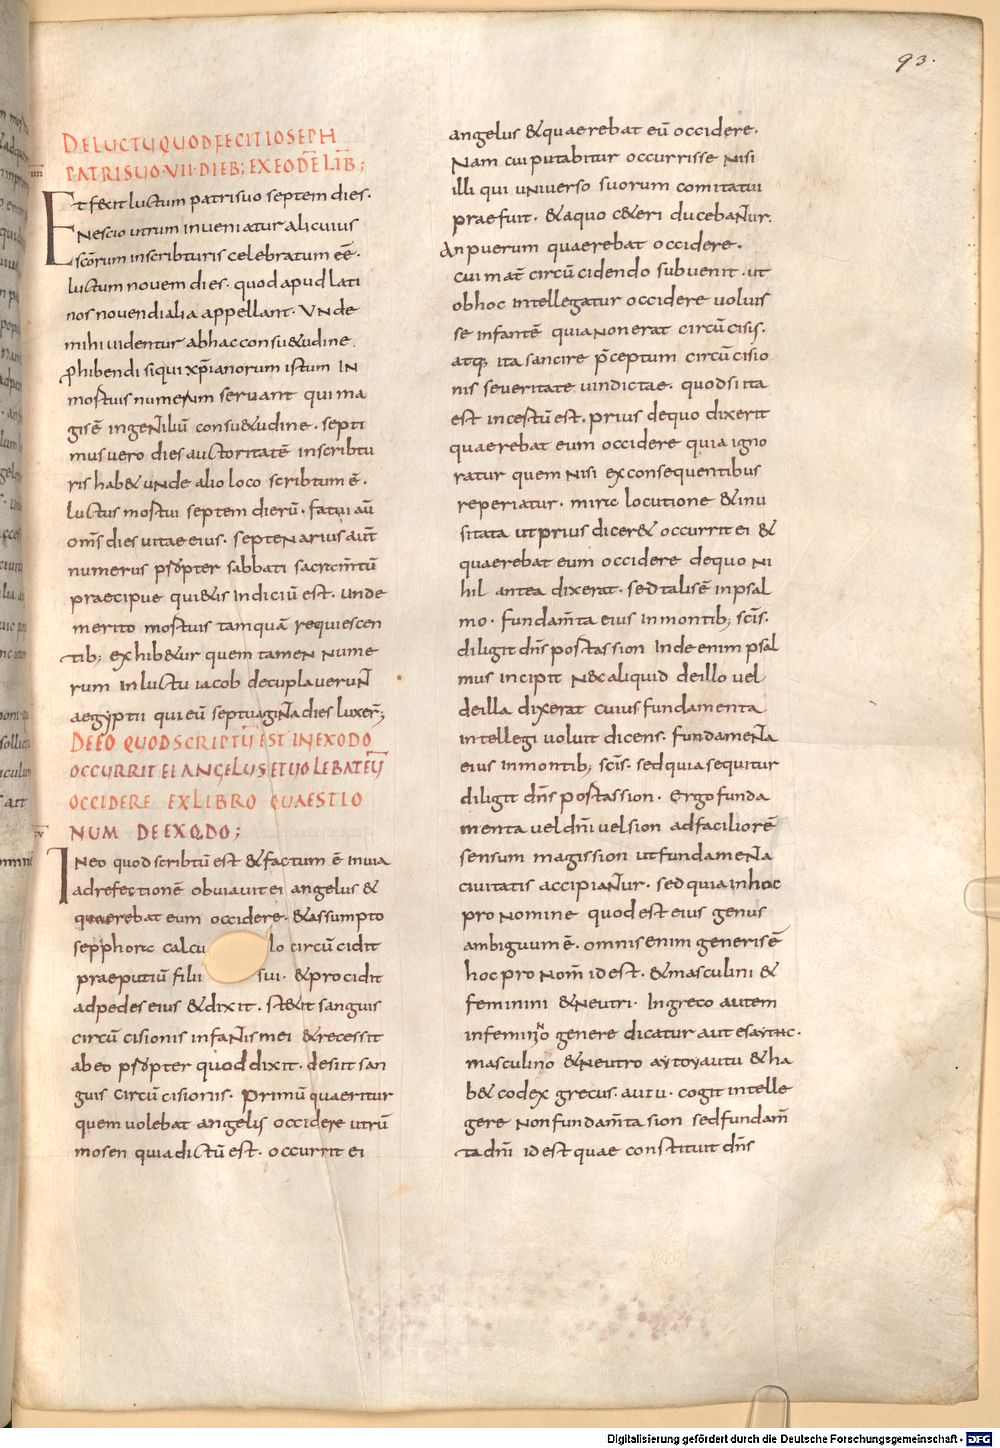 93.
DELUCTUQUODFECITIOSEPH
PATRISUO·VII·DIEB; EXEODĒ LIB̄;
IIII
Et fecit luctum patrisuo septem dies·
Nescio utrum inueniatur alicuius
scōrum inscribturis celebratum eē·
luctum nouem dies· quod apud lati
nos nouendialia appellant· Unde
mihi uidentur abhac consu&udine
ꝓhibendi siqui xp̄ianorum istum IN
mostuis numerum seruant qui ma
gis ē ingeNtiliū consu&udine· septi
mus uero dies auctoritatē inscribtu
ris hab& uNde alio loco scribtum ē·
luctus mostui septem dierū· fatui aū
om̄s dies uitae eius· septeNarius aut̄
numerus ꝓpter sabbati sacram̄tū
praecipue qui&is indiciū est· unde
merito mostuis tamquā requiescen
tib; exhib&ur quem tameN Nume
rum INluctu iacob decuplaueruNt
aegyptii qui eū septuaginta dies luxer̄;
DEEO QUODSCRIPTŪ EST INEXODO
OCCURRIT EI ANGELUS ETUOLEBATEŪ
OCCIDERE EXLIBRO QUAESTIO
NUM DEEXODO;
V
INeo quod scribtū est &factum ē inuia
adrefectionē obuiauit ei angelus &
quaerebat eum occidere· &assumpto
sepphora calcu lo circū cidit
praeputiū filii sui· &procidit
adpedes eius &dixit· st&it sanguis
circū cisionis infaNtis mei &recessit
abeo ꝓpter quod dixit· desiit san
guis circū cisionis· Primū quaeritur
quem uolebat angelis occidere utrū
mosen quia dictū est· occurrit ei
angelus &quaerebat eū occidere·
Nam cui putabitur occurrisse Nisi
illi qui uNiuerso suorum comitatui
praefuit· &aquo c&eri ducebaNtur·
An puerum quaerebat occidere·
cui mat̄ circū cidendo subuenit· ut
obhoc intellegatur occidere uoluis
se infantē quia Non erat circū cisis·
atq; ita sancire p̄ceptum circū cisio
nis seueritate uindictae· quod si ita
est incestū est· prius dequo dixerit
quaerebat eum occidere quia igno
ratur quem Nisi exconsequentibus
reperiatur· mira locutione &inu
sitata ut prius dicer& occurrit ei &
quaerebat eum occidere dequo Ni
hil antea dixerat· sed talis ē inpsal
mo· fundam̄ta eius inmontib; scīs·
diligit dn̄s postas sion Inde enim psal
mus incipit N&aliquid deillo uel
deilla dixerat cuius fundamenta
intellegi uoluit dicens· fundameNta
eius inmontib; scīs· sed quia sequitur
diligit dn̄s postassion· Ergo funda
menta uel dn̄i uel sion adfaciliorē
sensum magis sion ut fundameNta
ciuitatis accipiaNtur· sed quia inhoc
pro Nomine quod est eius genus
ambiguum ē· omnis enim generis ē
hoc pro Nom̄ id est· &masculini &
feminini &Neutri· Ingreco autem
infeminino genere dicatur autes αυτης·
masculino &Neutro αυτου autu &ha
b& codex grecus· autu· cogit intelle
gere Non fundam̄ta sion sed fundam̄
ta dn̄i id est quae constituit dn̄s
Digitalisierung gefördert durch die Deutsche Forschungsgemeinschaft - DFG